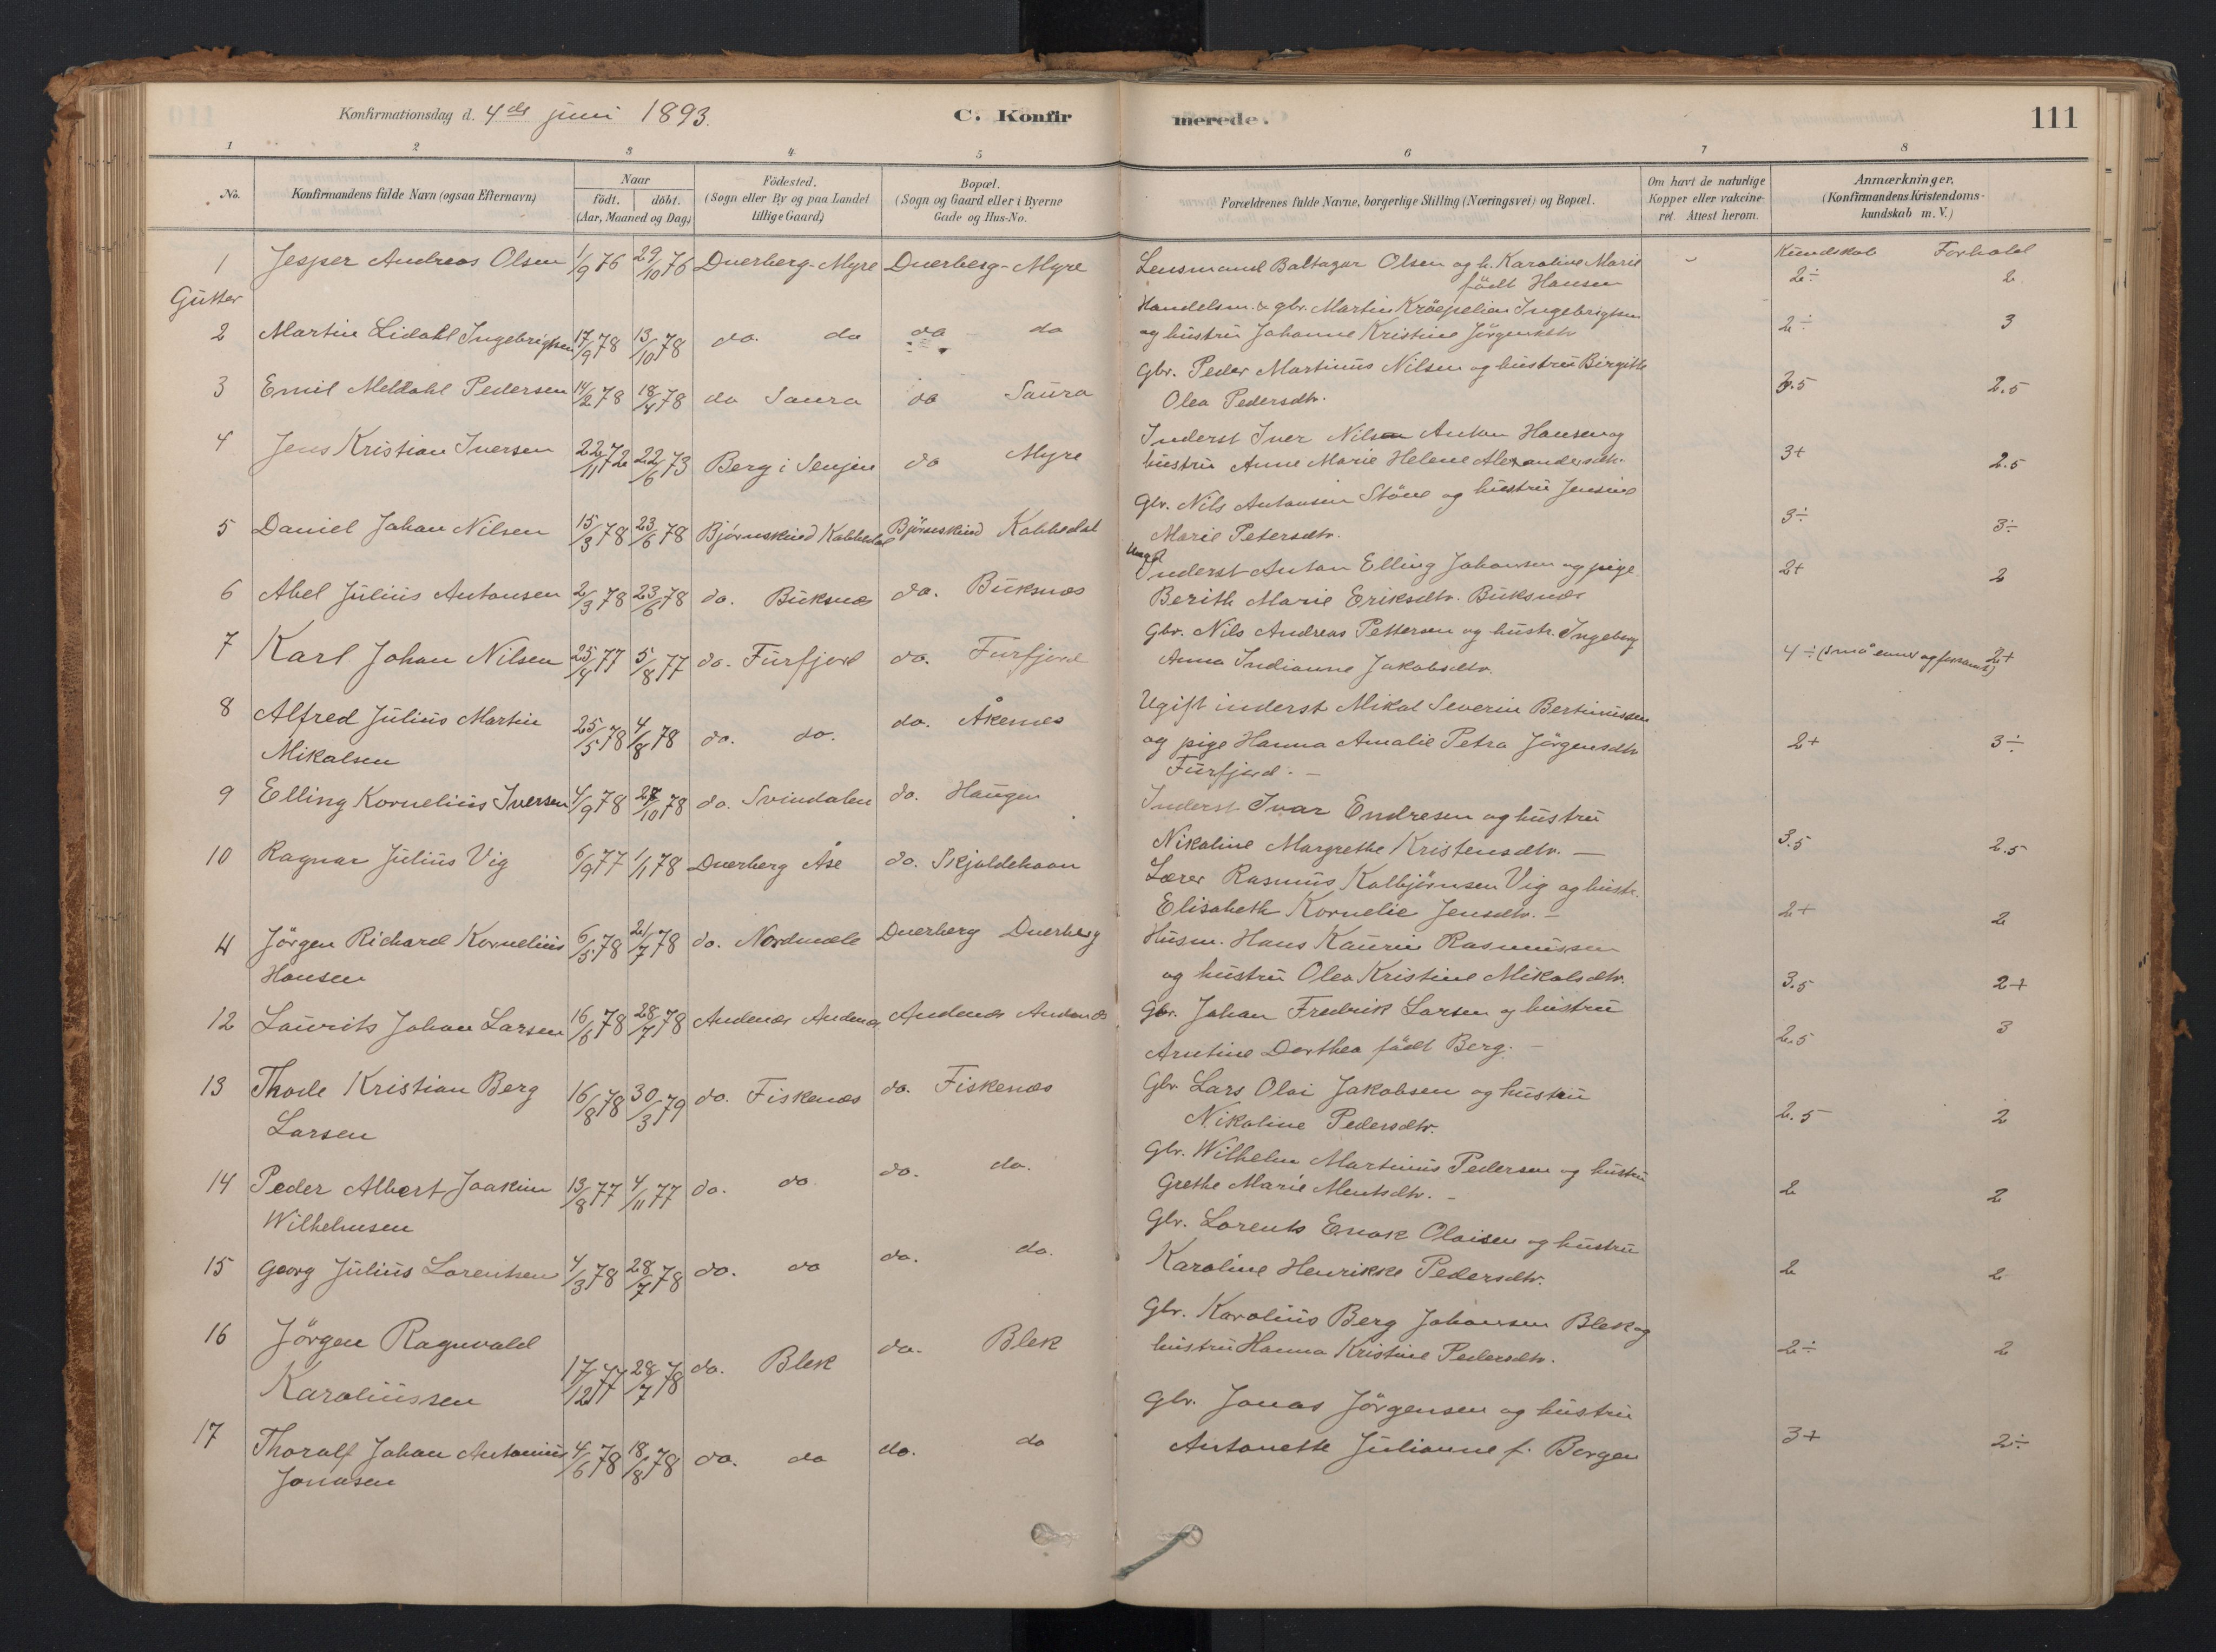 Konfirmationsdag d. 4de juni 1893.
C. Konfir
merede.
111
1 2 3 4 5 6 7 8
No.
Konfirmandens fulde Navn (ogsaa Efternavn)
Naar
födt. döbt.
(Aar, Maaned og Dag)
Födested.
(Sogn eller By og paa Landet
tillige Gaard)
Bopæl.
(Sogn og Gaard eller i Byerne
Gade og Hus-No.
Forældrenes fulde Navne, borgerlige Stilling (Næringsvei) og Bopæl.
Om havt de naturlige
Kopper eller vakcine-
ret. Attest herom.
Anmærkninger,
(Konfirmandens Kristendoms-
kundskab m. V.)
Kundskab Forhold
1 Jesper Andreas Olsen 1/9 76 29/10 76 Dverberg-Myre Dverberg-Myre Lensmand Baltazar Olsen og h. Karoline Marie
födt Hansen 2÷ 2
Gutter
2 Martin Lidahl Ingebrigtsen 17/9 78 13/10 78 do. do do do Handelsm. & gbr. Martin Kröepelien Ingebrigtsen
og hustru Johanne Kristine Jörgensdtr 2÷ 3
3 Emil Meldahl Pedersen 14/2 78 18/4 78 do Saura do Saura Gbr. Peder Martinus Nilsen og hustru Birgitte
Olea Pedersdtr. 2.5 2.5
4 Jens Kristian Iversen 22/11 72 22/6 73 Berg i Senjen do Myre Inderst Iver Nilsen Anton Hansen og
hustru Anne Marie Helene Alexandersdtr. 3+ 2.5
5 Daniel Johan Nilsen 15/3 78 23/6 78 Bjørnskind Kobbedal Björnskind Kobbedal Gbr. Nils Antonsen Stöne og hustru Jensine
Marie Petersdtr. 3÷ 3÷
6 Abel Julius Antonsen 2/3 78 23/6 78 do. Buksnæs do. Buksnæs Inderst Anton Elling Johansen og pige
Berith Marie Eriksdtr. Buksnæs 2+ 2
7 Karl Johan Nilsen 25/4 77 5/8 77 do. Furfjord do. Furfjord Gbr. Nils Andreas Pettersen og hustr. Ingeborg
Anna Indianne Jakobsdtr. 4÷ (små evner og forsømt) 2+
8 Alfred Julius Martin
Mikalsen 25/5 78 4/8 78 do. do. do. Åkenes Ugift inderst Mikal Severin Bertinussen
og pige Hanna Amalie Petra Jörgensdtr
Furfjord. — 2+ 3÷
9 Elling Kornelius Iversen 4/9 78 27/10 78 do. Svindalen do. Haugen Inderst Ivar Endresen og hustru
Nikoline Margrethe Kristensdtr. — 3.5 2.5
10 Ragnar Julius Vig 6/9 77 1/1 78 Dverberg Åse do. Skjoldehavn Lærer Rasmus Kolbjörnsen Vig og hustr.
Elisabeth Kornelie Jensdtr. — 2+ 2
11 Jörgen Richard Kornelius
Hansen 6/5 78 21/7 78 do. Nordmele Dverberg Dverberg Husm. Hans Kaurin Rasmussen
og hustru Olea Kristine Mikalsdtr. 3.5 2+
12 Laurits Johan Larsen 16/6 78 28/7 78 Andenes Andenes Andenes Andenes Gbr. Johan Fredrik Larsen og hustru
Arntine Dorthea födt Berg. — 2.5 3
13 Thode Kristian Berg
Larsen 16/8 78 30/3 79 do. Fiskenæs do. Fiskenæs Gbr. Lars Olai Jakobsen og hustru
Nikoline Pedersdtr. 2.5 2
14 Peder Albert Joakim
Wilhelmsen 13/8 77 4/11 77 do. do do. do. Gbr. Wilhelm Martinus Pedersen og hustru
Grethe Marie Mentsdtr. — 2 2
15 Georg Julius Lorentsen 4/3 78 28/7 78 do. do do. do. Gbr. Lorents Enok Olaisen og hustru
Karoline Henrikke Pedersdtr. 2 2
16 Jörgen Ragnvald
Karoliussen 17/12 77 28/7 78 do. Blek do. Blek Gbr. Karolius Berg Johansen Blek og
hustru Hanna Kristine Pedersdtr. 2÷ 2
17 Thoralf Johan Antonius
Jonasen 4/6 78 18/8 78 do. do do. do Gbr. Jonas Jörgensen og hustru
Antonette Julianne f. Borgen 3+ 2÷